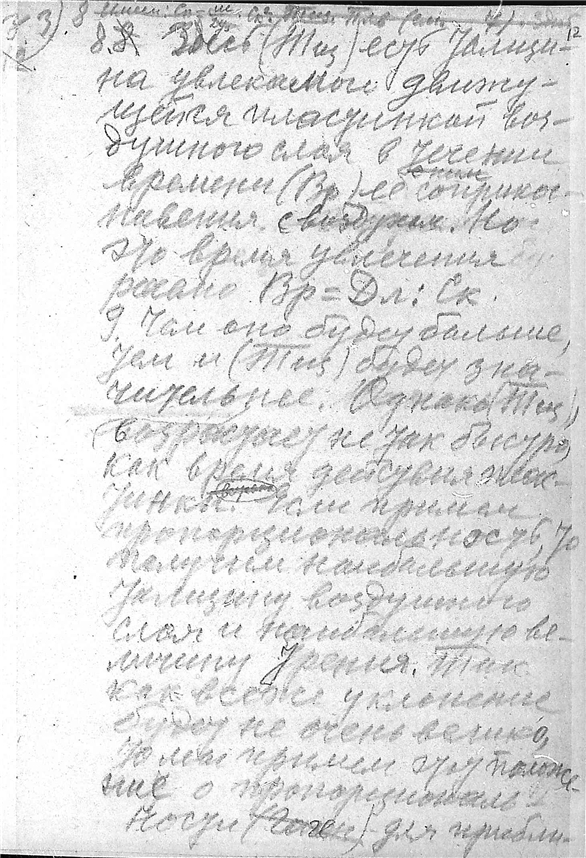 8.8. Здесь (Тщ) есть Толщи-
на увлекаемого движу-
щейся пластинкой воз-
душного слоя в течении
времени (Вр) ее соприкос-
новения с воздухом. Но
это время увлечения
равно Вр = Дл : Ск.
9 Чем оно будет больше,
тем и (Тщ) будет зна-
чительнее. Однако (Тщ)
возрастает не так быстро,
как время действия плас-
тинки. Если примем
пропорциональность, то
получим наибольшую
Толщину воздушного
слоя и наибольшую ве-
личину Трения. Так
как все же уклонение
будет не очень велико,
то мы примем это положе-
ние о пропорциональ-
ности для прибли-